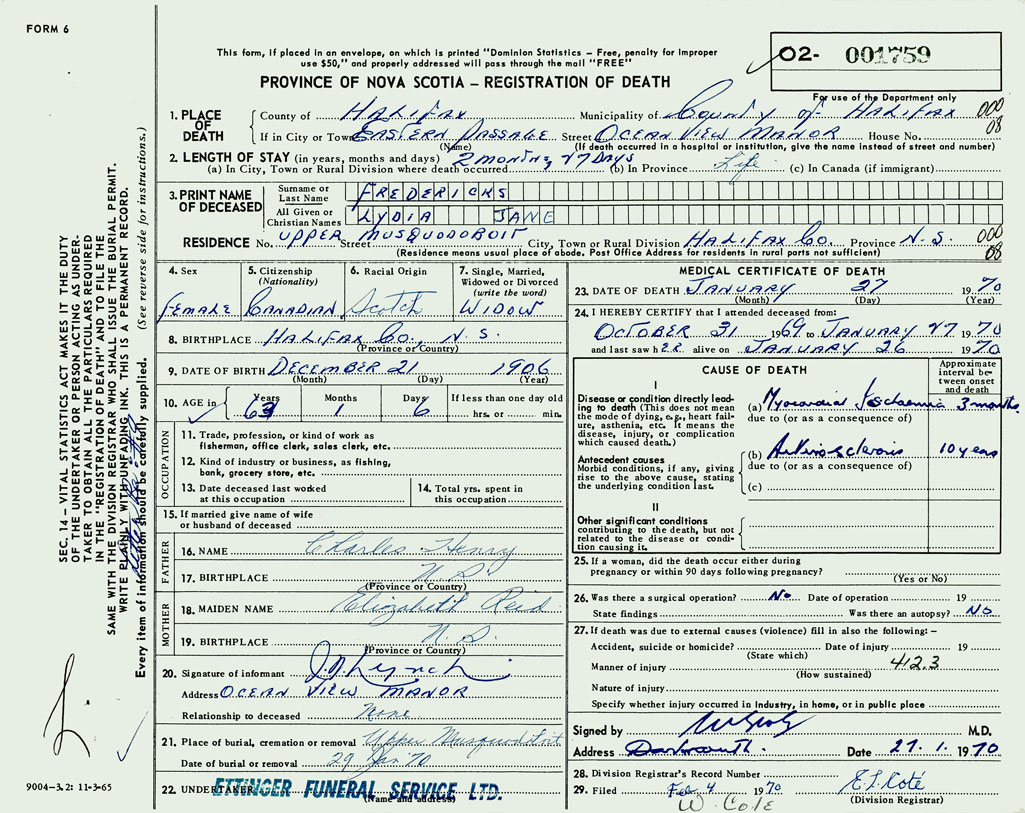 FORM 6
This form, if placed in an envelope, on which is printed "Dominion Statistics – Free, penalty for improper
use $50," and properly addressed will pass through the mail "FREE"
PROVINCE OF NOVA SCOTIA – REGISTRATION OF DEATH
02- 001759
For use of the Department only
1. PLACE OF DEATH County of HALIFAX Municipality of County of HALIFAX 000
If in City or Town EASTERN PASSAGE Street OCEAN VIEW MANOR House No. 08
(Name) (If death occurred in a hospital or institution, give the name instead of street and number)
2. LENGTH OF STAY (in years, months and days) 2 months 27 Days
(a) In City, Town or Rural Division where death occurred (b) In Province Life (c) In Canada (if immigrant)
3. PRINT NAME OF DECEASED Surname or Last Name FREDERICKS
All Given or Christian Names LYDIA JANE
RESIDENCE No. UPPER Street MUSQUODOBOIT City, Town or Rural Division HALIFAX Co. Province N.S. 000
(Residence means usual place of abode. Post Office Address for residents in rural parts not sufficient) 08
4. Sex 5. Citizenship (Nationality) 6. Racial Origin 7. Single, Married, Widowed or Divorced (write the word)
FEMALE CANADIAN Scotch WIDOW
8. BIRTHPLACE HALIFAX Co., N.S.
(Province or Country)
9. DATE OF BIRTH DECEMBER 21 1906
(Month) (Day) (Year)
10. AGE in Years Months Days If less than one day old
63 1 6 hrs. or min.
OCCUPATION
11. Trade, profession, or kind of work as
fisherman, office clerk, sales clerk, etc.
12. Kind of industry or business, as fishing,
bank, grocery store, etc.
13. Date deceased last worked at this occupation 14. Total yrs. spent in this occupation
15. If married give name of wife
or husband of deceased
FATHER
16. NAME Charles Henry
17. BIRTHPLACE N.S.
(Province or Country)
MOTHER
18. MAIDEN NAME Elizabeth Reid
19. BIRTHPLACE N.S.
(Province or Country)
20. Signature of informant Lynch
Address OCEAN VIEW MANOR
Relationship to deceased None
21. Place of burial, cremation or removal Upper Musquodoboit
Date of burial or removal 29 Jan 70
22. UNDERTAKER ETTINGER FUNERAL SERVICE LTD.
(Name and address)
MEDICAL CERTIFICATE OF DEATH
23. DATE OF DEATH JANUARY 27 1970
(Month) (Day) (Year)
24. I HEREBY CERTIFY that I attended deceased from:
OCTOBER 31 1969 to JANUARY 27 1970
and last saw her alive on JANUARY 26 1970
CAUSE OF DEATH Approximate interval between onset and death
I
Disease or condition directly leading to death (This does not mean the mode of dying, e.g., heart failure, asthenia, etc. It means the disease, injury, or complication which caused death.)
(a) Myocardial Ischaemia 3 months
due to (or as a consequence of)
Antecedent causes
Morbid conditions, if any, giving rise to the above cause, stating the underlying condition last.
(b) Arteriosclerosis 10 years
due to (or as a consequence of)
(c)
II
Other significant conditions
contributing to the death, but not
related to the disease or condition causing it.
25. If a woman, did the death occur either during
pregnancy or within 90 days following pregnancy?
(Yes or No)
26. Was there a surgical operation? No Date of operation 19
State findings Was there an autopsy? No
27. If death was due to external causes (violence) fill in also the following: –
Accident, suicide or homicide? Date of injury 19
(State which)
Manner of injury 412.3
(How sustained)
Nature of injury
Specify whether injury occurred in industry, in home, or in public place
Signed by M.D.
Address Dartmouth. Date 27. 1. 1970
28. Division Registrar's Record Number
29. Filed Feb 4 1970 E L Coté
(Division Registrar)
W. Cole
SEC. 14 – VITAL STATISTICS ACT MAKES IT THE DUTY
OF THE UNDERTAKER OR PERSON ACTING AS UNDER-
TAKER TO OBTAIN ALL THE PARTICULARS REQUIRED
IN THE "REGISTRATION OF DEATH" AND TO FILE THE
SAME WITH THE DIVISION REGISTRAR WHO SHALL ISSUE THE BURIAL PERMIT.
WRITE PLAINLY WITH UNFADING INK. THIS IS A PERMANENT RECORD.
Every item of information should be carefully supplied. (See reverse side for instructions.)
9004–3.2: 11-3-65